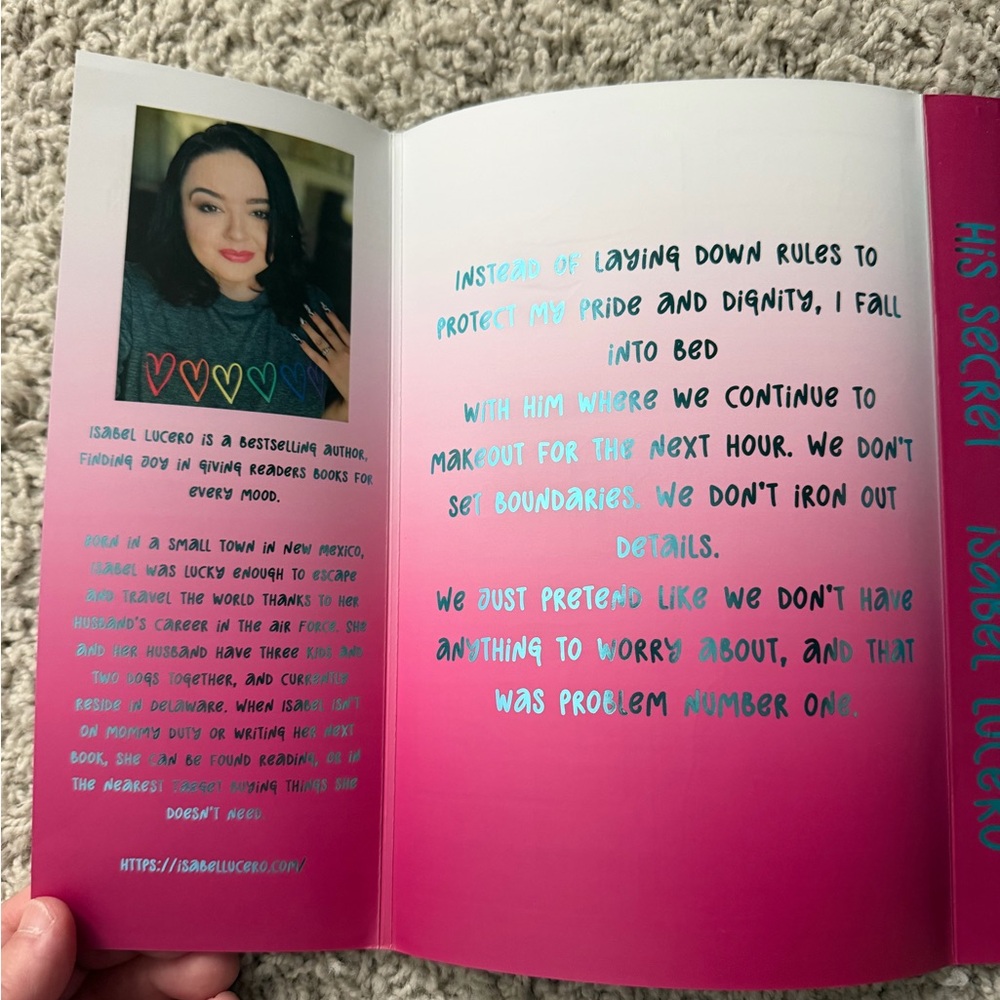 Isabel Lucero is a bestselling author,
finding joy in giving readers books for
every mood.
Born in a small town in New Mexico,
Isabel was lucky enough to escape
and travel the world thanks to her
husband's career in the Air Force. She
and her husband have three kids and
two dogs together, and currently
reside in Delaware. When Isabel isn't
on mommy duty or writing her next
book, she can be found reading, or in
the nearest Target buying things she
doesn't need.
https://isabellucero.com/
Instead of laying down rules to
protect my pride and dignity, I fall
into bed
with him where we continue to
makeout for the next hour. We don't
set boundaries. We don't iron out
details.
We just pretend like we don't have
anything to worry about, and that
was problem number one.
His Secret Isabel Lucero